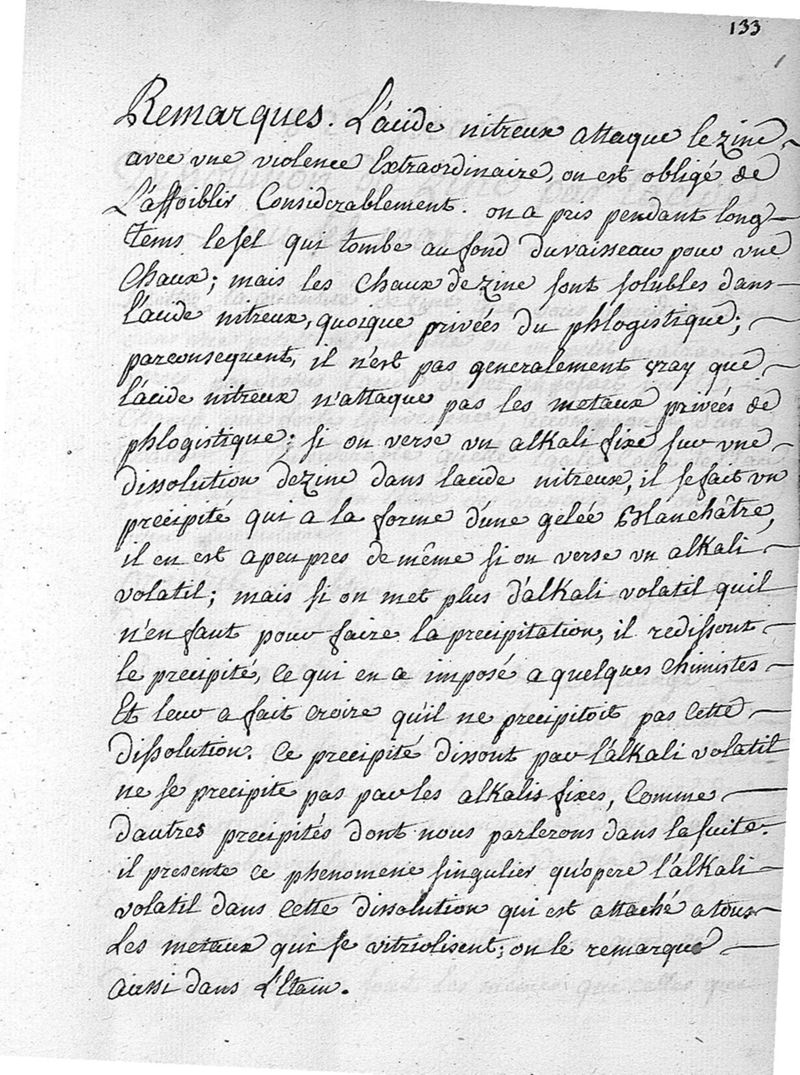 133
Remarques. L'acide nitreux attaque le zinc
avec vne violence Extraordinaire, on est obligé de
L'affoiblir Considerablement. on a pris pendant long-
tems le sel qui tombe au fond du vaisseau pour vne
Chaux; mais les Chaux de zinc sont solubles dans
l'acide nitreux, quoique privées du phlogistique;
parconsequent, il n'est pas generalement vray que
l'acide nitreux n'attaque pas les metaux privées de
phlogistique; si on verse vn alkali fixe sur vne
dissolution de zinc dans l'acide nitreux, il se fait vn
précipité qui a la forme d'une gelée Blanchâtre,
il en est apeupres de même si on verse vn alkali
volatil; mais si on met plus d'alkali volatil quil
n'en faut pour faire la precipitation, il redissout
le precipité, Ce qui en a imposé a quelques Chimistes
Et leur a fait croire qu'il ne precipitoit pas Cette
dissolution. Ce precipité dissout par l'alkali volatil
ne se precipite pas par les alkalis fixes, Comme
d'autres precipités dont nous parlerons dans la suite.
il presente ce phenomene singulier qu'opere l'alkali
volatil dans Cette dissolution qui est attaché a tous
Les metaux qui se vitriolisent; on le remarque
aussi dans L'Etain.